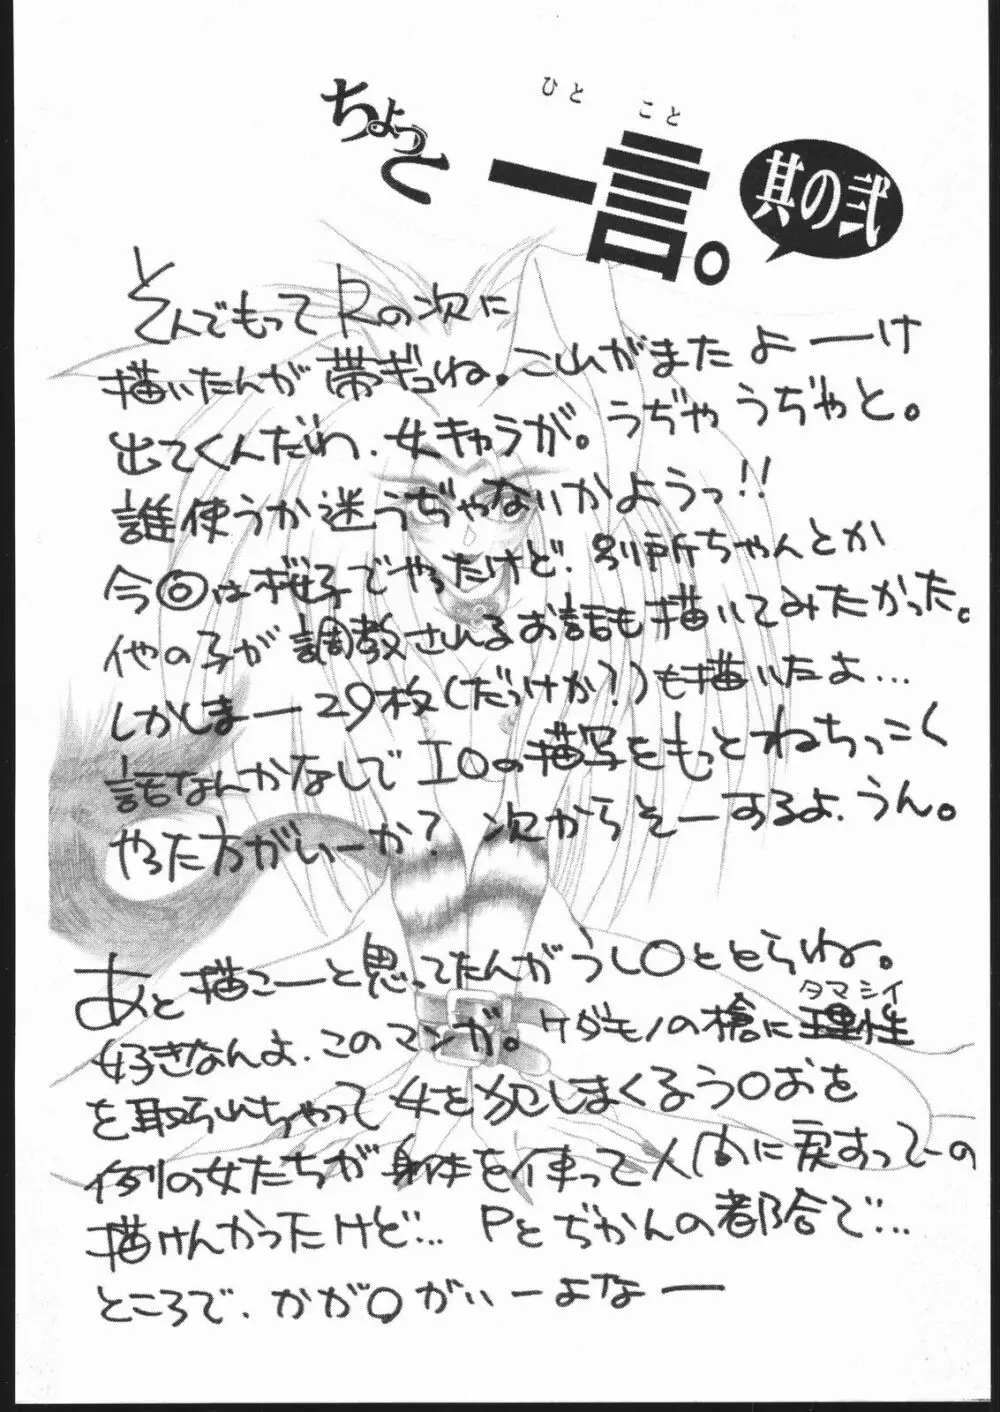 ちょっと一言。
ひと こと
其の弐
そんでもってRの次に
描いたんが帯ギュね。これがまたよーーけ
出てくんだわ、女キャラが。うぢゃうぢゃと。
誰使うか迷うぢゃないかようっ!!
今◎は桜子でやったけど、別所ちゃんとか
他の子が調教されるお話も描いてみたかった。
しかしまー29枚(だっけか?)も描いたよ…
話なんかなしでエ○の描写をもっとねちっこく
やった方がいーか? 次からそーするよ、うん。
あと描こーと思ってたんがうし○ととらね。
好きなんよ、このマンガ。ケダモノの槍に理性
タマシイ
を取られちゃって女を犯しまくるう○おを
例の女たちが身体を使って人間に戻すってーの
描けんかったけど… Pとぢかんの都合で…
ところで、かが○がいーよなー